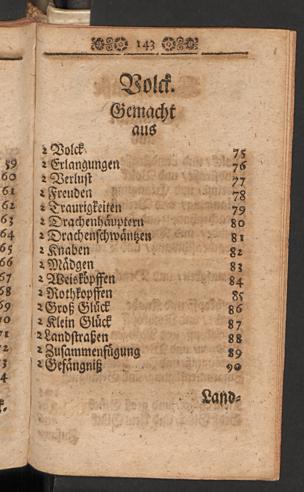 143
Volck.
Gemacht
aus
2 Volck 75
2 Erlangungen 76
2 Verlust 77
2 Freuden 78
2 Traurigkeiten 79
2 Drachenhäuptern 80
2 Drachenschwäntzen 81
2 Knaben 82
2 Mädgen 83
2 Weisköpffen 84
2 Rothkopffen 85
2 Groß Glück 86
2 Klein Glück 87
2 Landstraßen 88
2 Zusammenfügung 89
2 Gefängniß 90
Land-